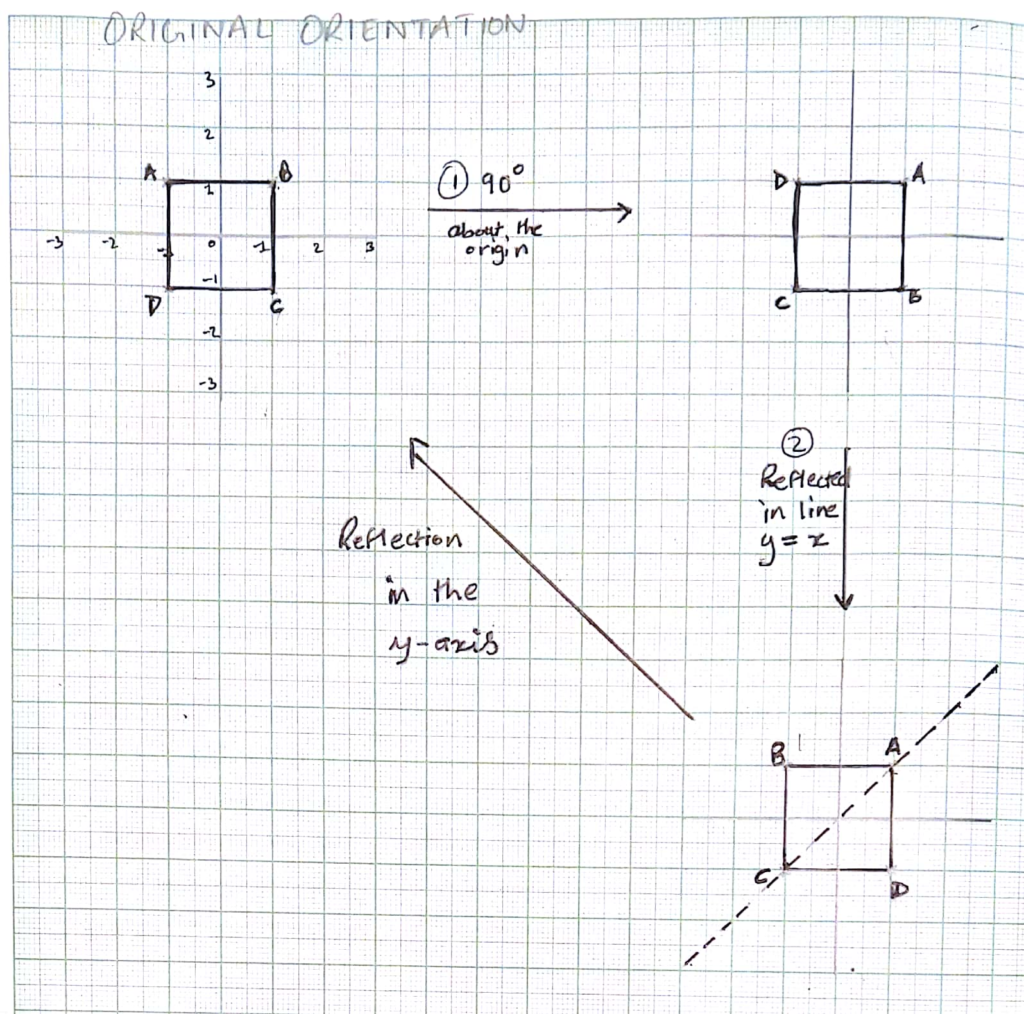 ORIGINAL ORIENTATION
3
2
A B
1
① 90°
D A
about the
origin
-3 -2 -1 0 1 2 3
-1
D C
C B
-2
-3
②
Reflected
in line
y = x
Reflection
in the
y-axis
B A
C D